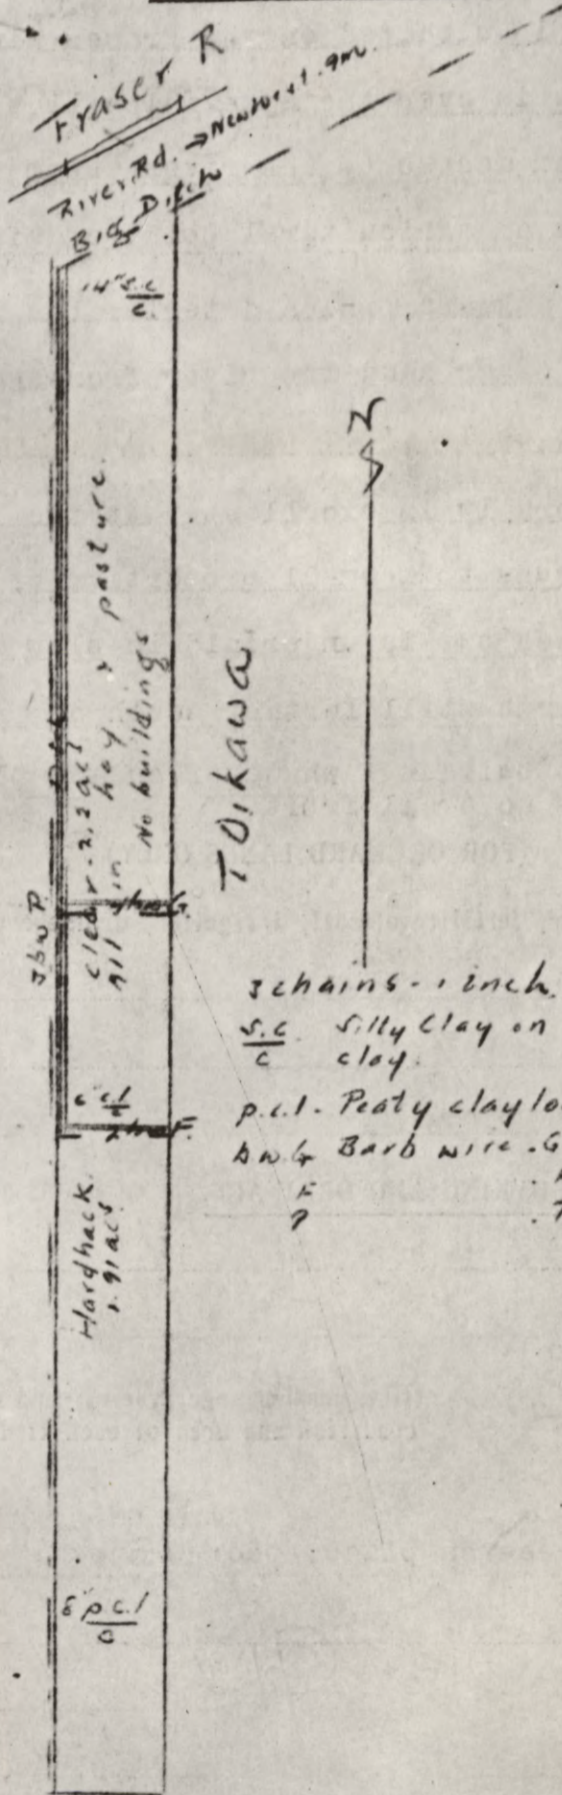 Fraser R
River Rd. → Newton 1.9m.
Big Ditch
14" s.c
c
clear - 2.2 acs
all in hay & pasture
No buildings
3 b w P.
T Oikawa
N
3 chains - 1 inch.
s.c Silty Clay on
c clay.
6" c.l
c
p.c.l - Peaty clay lo
b w G Barb wire . G
F
P
Hardhack
1.91 acs
8" p c.l
c